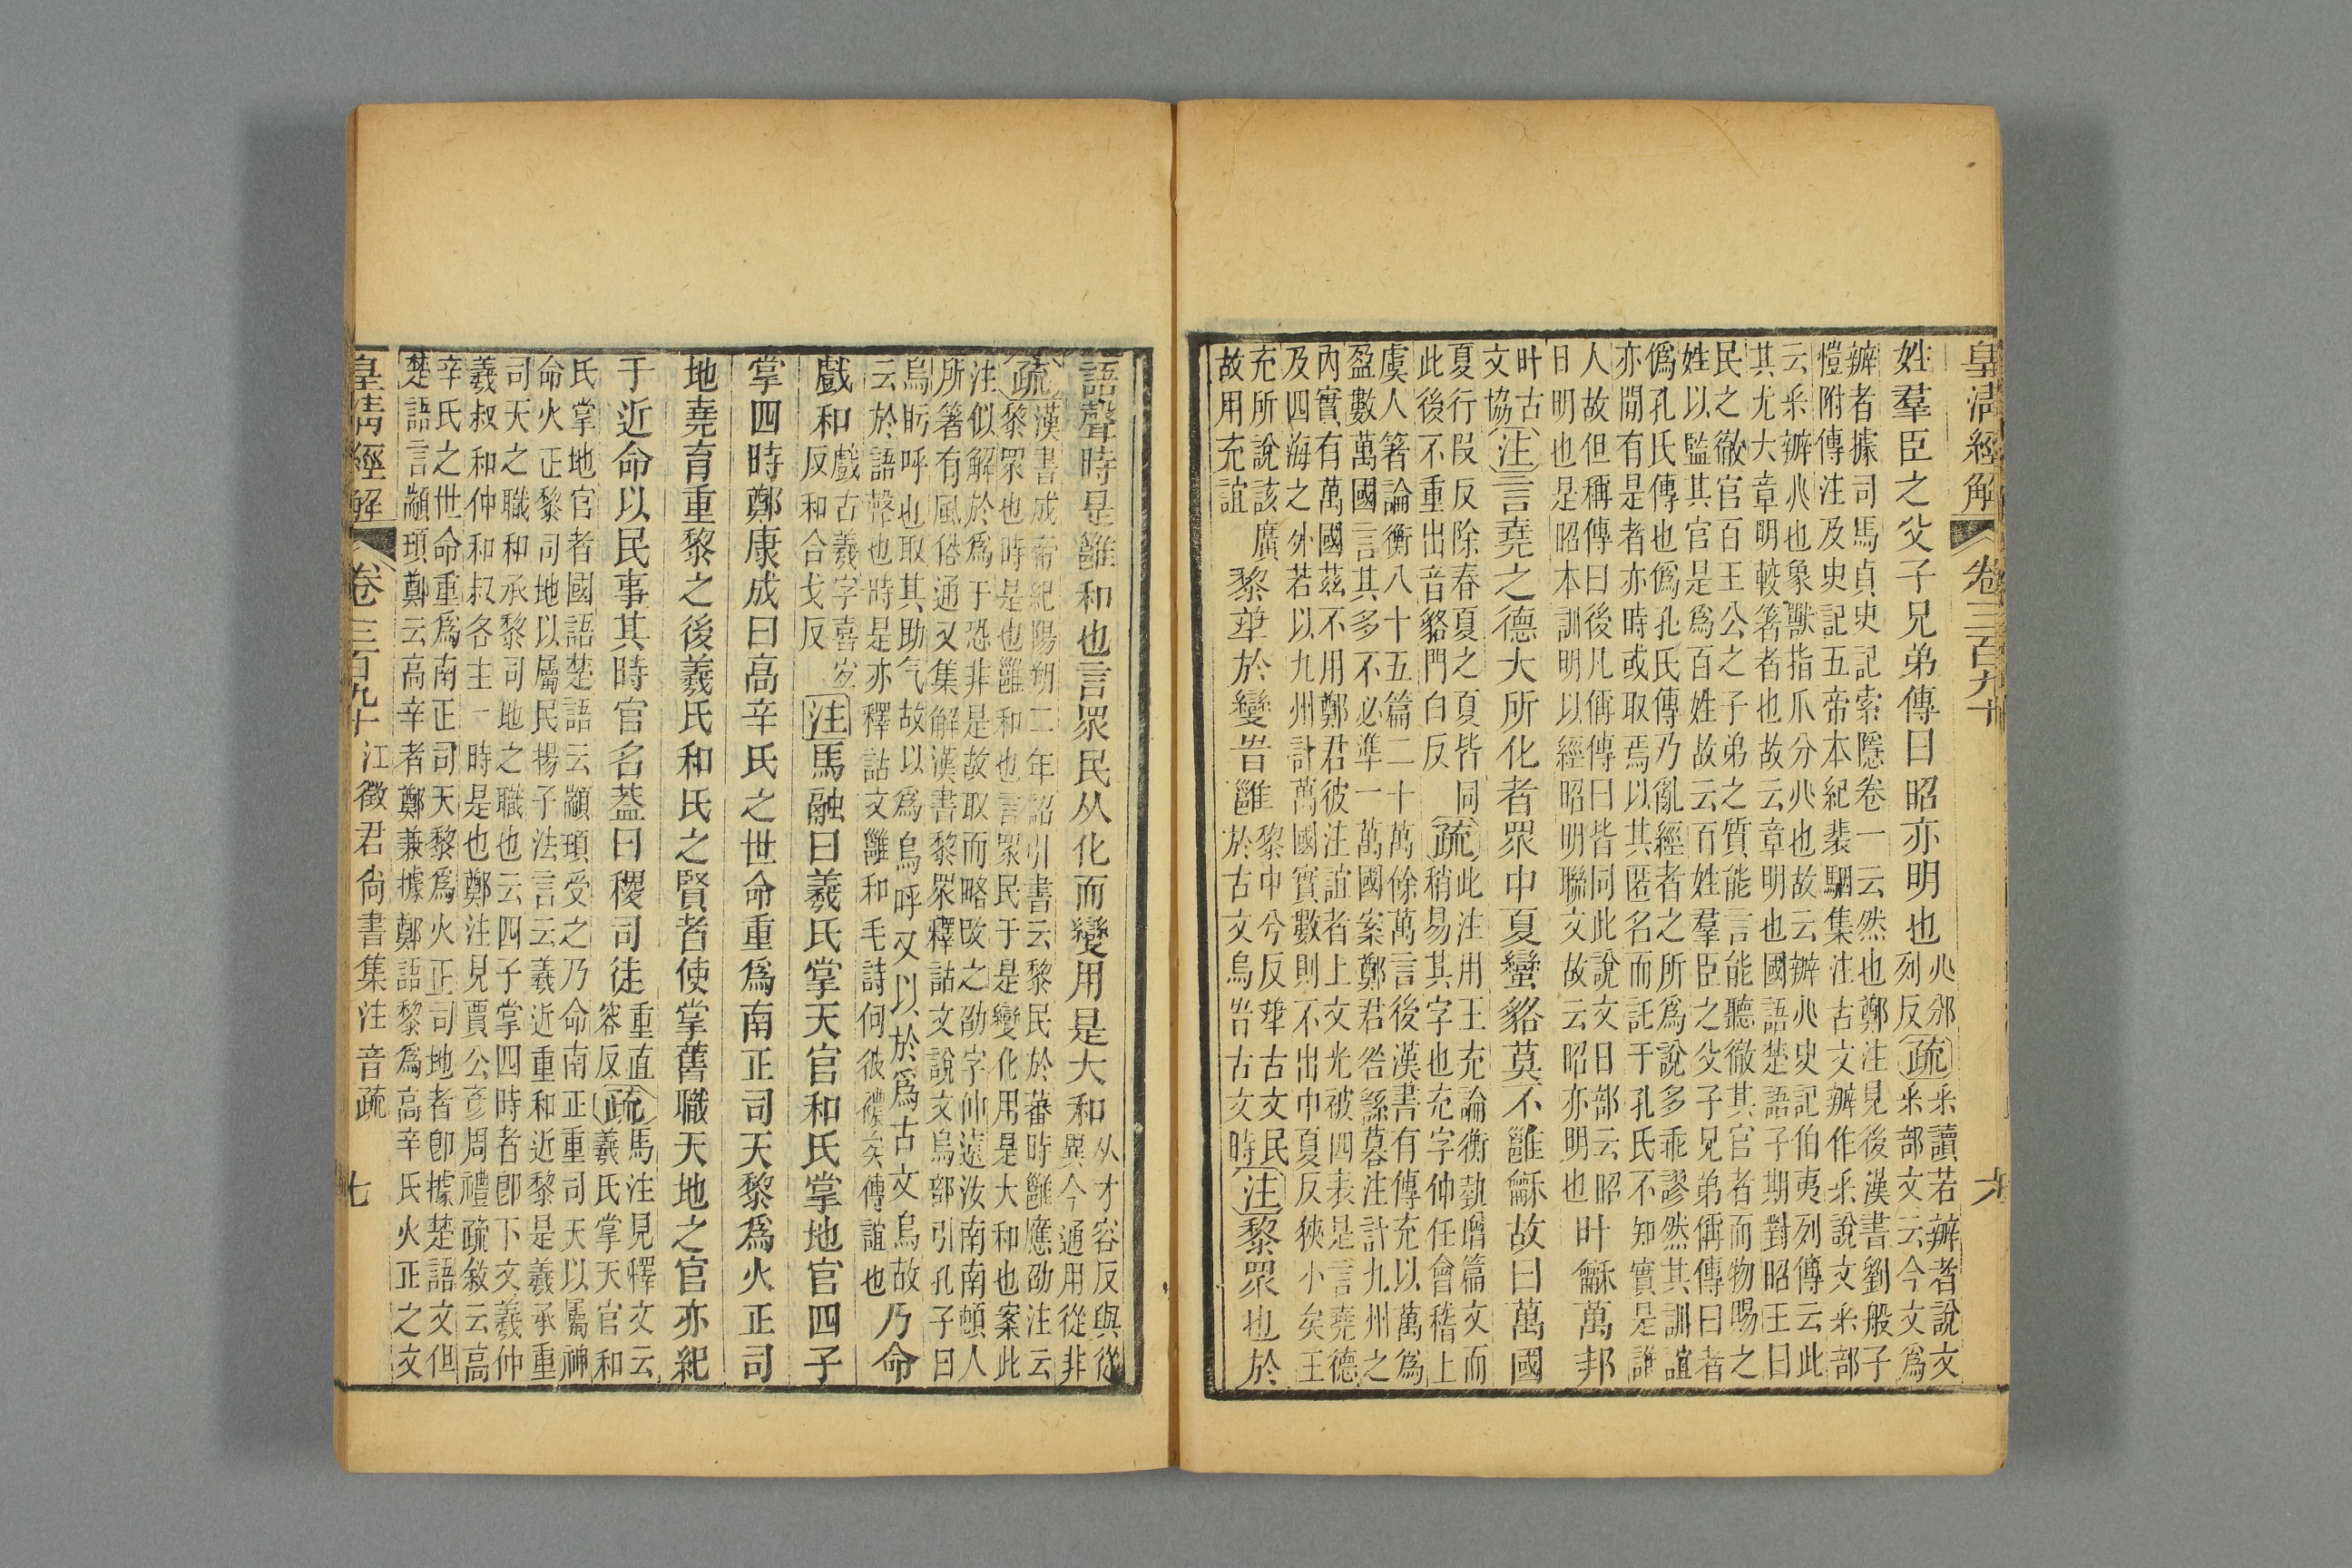 皇清經解 卷三百九十 六
姓羣臣之父子兄弟傳曰昭亦明也
𠔁邠
列反
疏
釆讀若辨者說文
釆部文云今文爲
辦者據司馬貞史記索隱卷一云然也鄭注見後漢書劉般子
愷附傳注及史記五帝本紀裴駰集注古文辦作釆說文釆部
云釆辦𠔁也象獸指爪分𠔁也故云辦𠔁史記伯夷列傳云此
其尤大章明較箸者也故云章明也國語楚語子期對昭王曰
民之徹官百王公之子弟之質能言能聽徹其官者而物賜之
姓以監其官是爲百姓故云百姓羣臣之父子兄弟偁傳曰者
僞孔氏傳也僞孔氏傳乃亂經者之所爲說多乖謬然其訓誼
亦閒有是者亦時或取焉以其匿名而託于孔氏不知實是誰
人故但稱傳曰後凡偁傳曰皆同此說文日部云昭
日明也是昭本訓明以經昭明聯文故云昭亦明也
叶龢萬邦
叶古
文協
注
言堯之德大所化者眾中夏蠻貉莫不雝龢故曰萬國
夏行叚反除春夏之夏皆同
此後不重出音貉門白反
疏
此注用王充論衡埶增篇文而
稍易其字也充字仲任會稽上
虞人箸論衡八十五篇二十萬餘萬言後漢書有傳充以萬爲
盈數萬國言其多不必準一萬國案鄭君咎繇暮注計九州之
內實有萬國茲不用鄭君彼注誼者上文光被四表是言堯德
及四海之外若以九州計萬國實數則不出中夏反狹小矣王
充所說該
故用充誼
廣
黎萃於變旹雝
黎中兮反萃古文民
於古文烏旹古文時
注
黎眾也於
語聲時是雝和也言眾民从化而變用是大和
从才容反與從
異今通用從非
疏
漢書成帝紀陽朔二年詔引書云黎民於蕃時雝應劭注云
黎眾也時是也雝和也言眾民于是變化用是大和也案此
注似解於爲于恐非是故取而略改之劭字仲遠汝南南頓人
所箸有風俗通又集解漢書黎眾釋詁文說文烏部引孔子曰
烏盱呼也取其助气故以爲烏呼又以於爲古文烏故
云於語聲也時是亦釋詁文雝和毛詩何彼襛矣傳誼也
乃命
戲和
戲古羲字喜宐
反和合戈反
注
馬融曰羲氏掌天官和氏掌地官四子
掌四時鄭康成曰高辛氏之世命重爲南正司天黎爲火正司
地堯育重黎之後羲氏和氏之賢者使掌舊職天地之官亦紀
于近命以民事其時官名葢曰稷司徒
重直
容反
疏
馬注見釋文云
羲氏掌天官和
氏掌地官者國語楚語云顓頊受之乃命南正重司天以屬神
命火正黎司地以屬民揚子法言云羲近重和近黎是羲承重
司天之職和承黎司地之職也云四子掌四時者卽下文羲仲
羲叔和仲和叔各主一時是也鄭注見賈公彥周禮疏敘云高
辛氏之世命重爲南正司天黎爲火正司地者卽據楚語文但
楚語言顓頊鄭云高辛者鄭兼據鄭語黎爲高辛氏火正之文
皇清經解 卷三百九十 江徵君尙書集注音疏 七